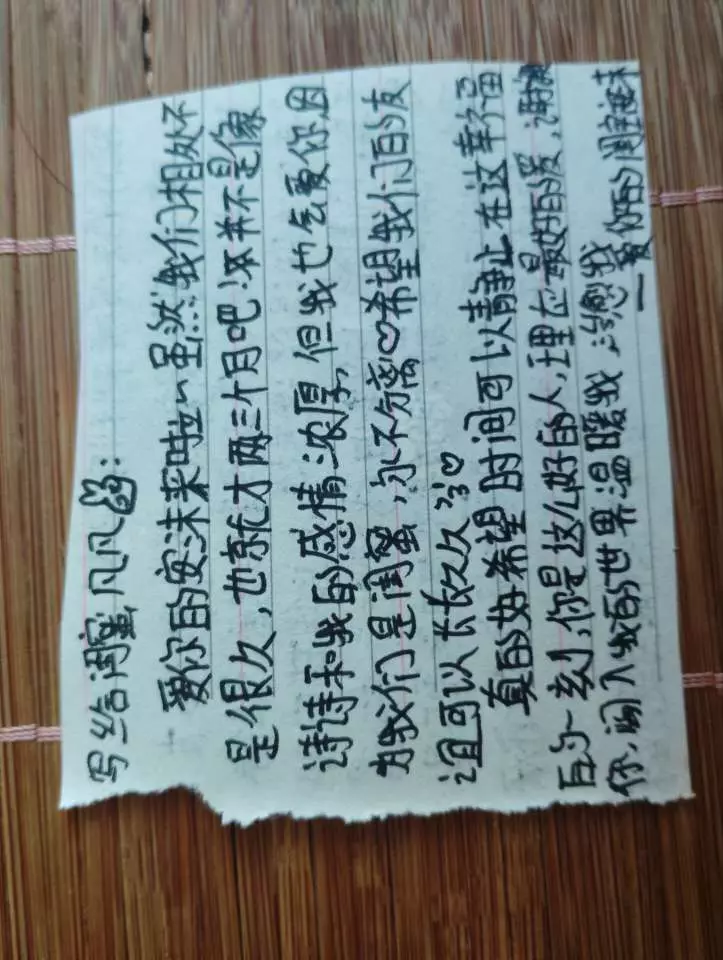 写给闺蜜凡凡:
爱你的安沫来啦~虽然我们相处不
是很久,也就才两三个月吧,这并不是像
诗诗和我的感情浓厚,但我也会爱你,因
为我们是闺蜜,永不分离♡希望我们的友
谊可以长长久久♡
真的好希望时间可以静止在这幸福
的一刻,你是这么好的人,理应是最好的爱,谢谢
你,闯入我的世界温暖我,治愈我
—爱你的闺蜜安沫